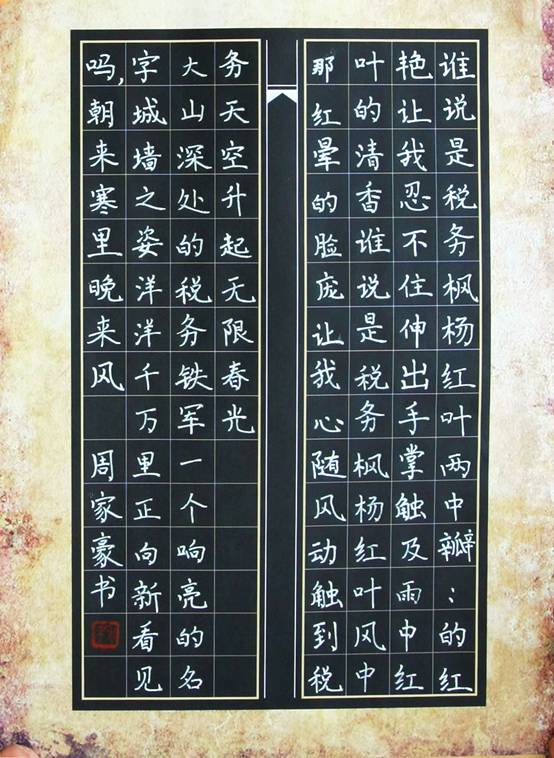 谁说是税务枫杨红叶两中瓣：的红
艳让我忍不住伸出手掌触及雨中红
叶的清香谁说是税务枫杨红叶风中
那红晕的脸庞让我心随风动触到税
务天空升起无限春光
大山深处的税务铁军一个响亮的名
字城墙之姿洋洋千万里正向新看见
吗，朝来寒里晚来风 周家豪书